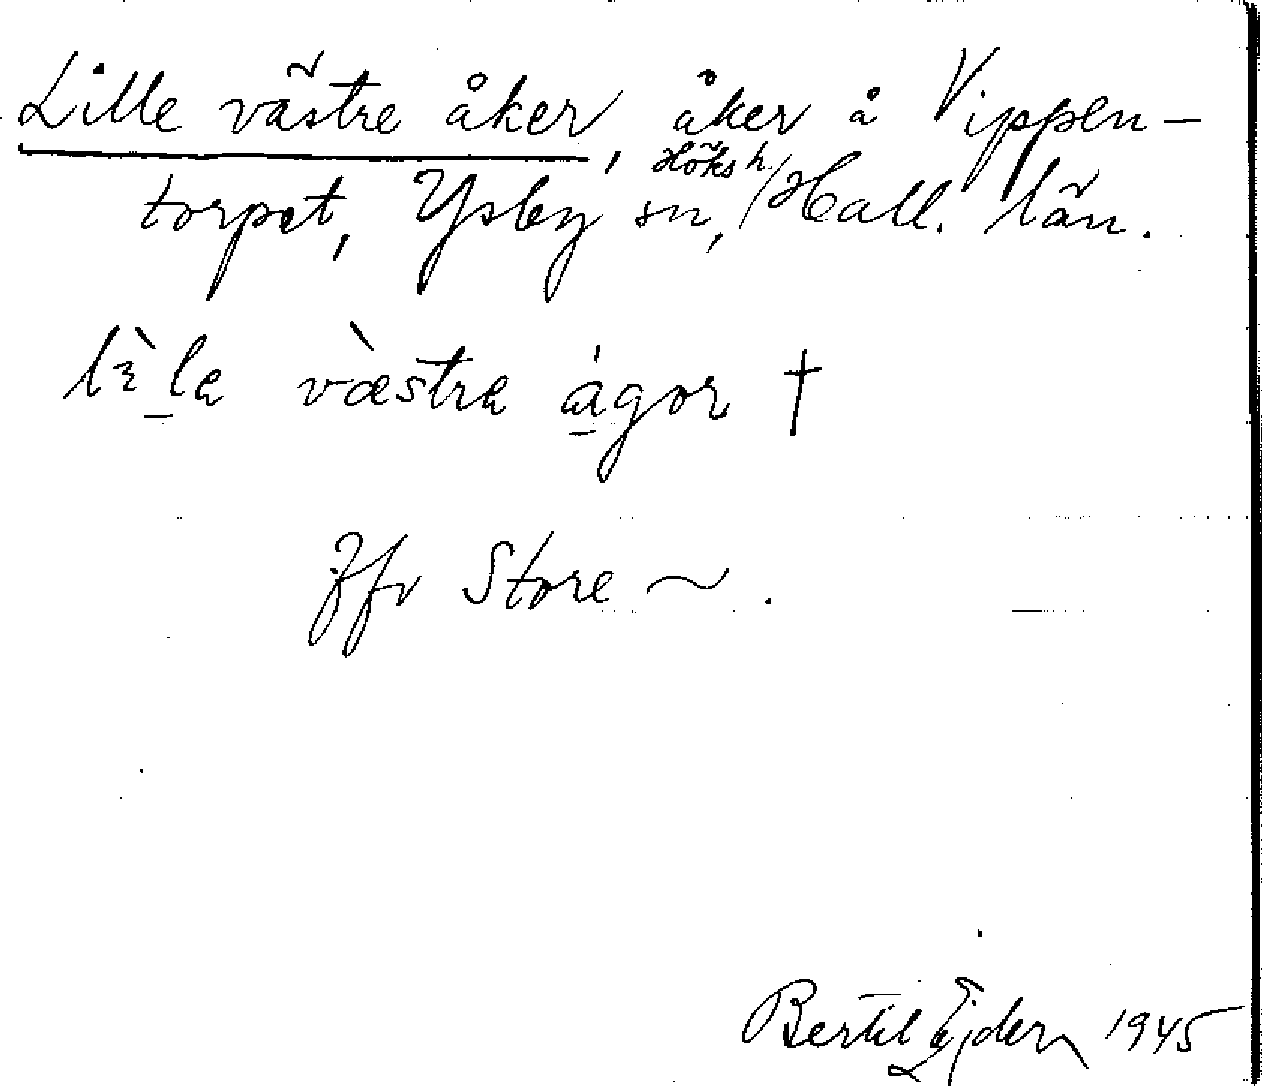 Lille västre åker, åker å Vippen-
torpet, Ysby sn, Höks h. Hall. län.
lὲla vὰstra ågor †
Jfr Store ~.
Bertil Ejder 1945